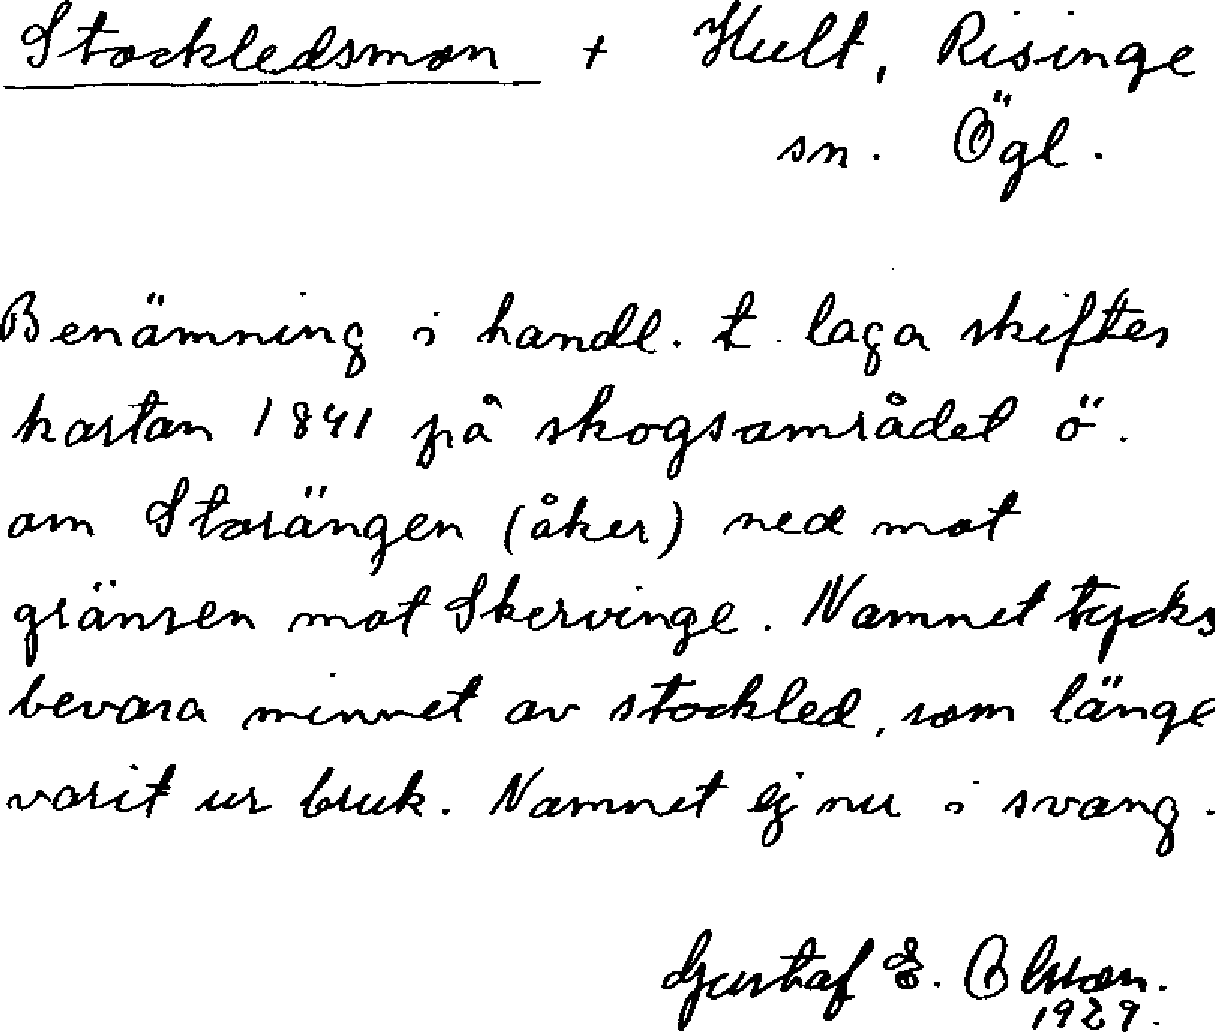 Stockledsmon + Hult, Risinge
sn. Ögl.
Benämning i handl. t. laga skiftes
kartan 1841 på skogsområdet ö.
om Storängen (åker) ned mot
gränsen mot Skervinge. Namnet tycks
bevara minnet av stockled, som länge
varit ur bruk. Namnet ej nu i svang.
Gustaf E. Olsson.
1929.